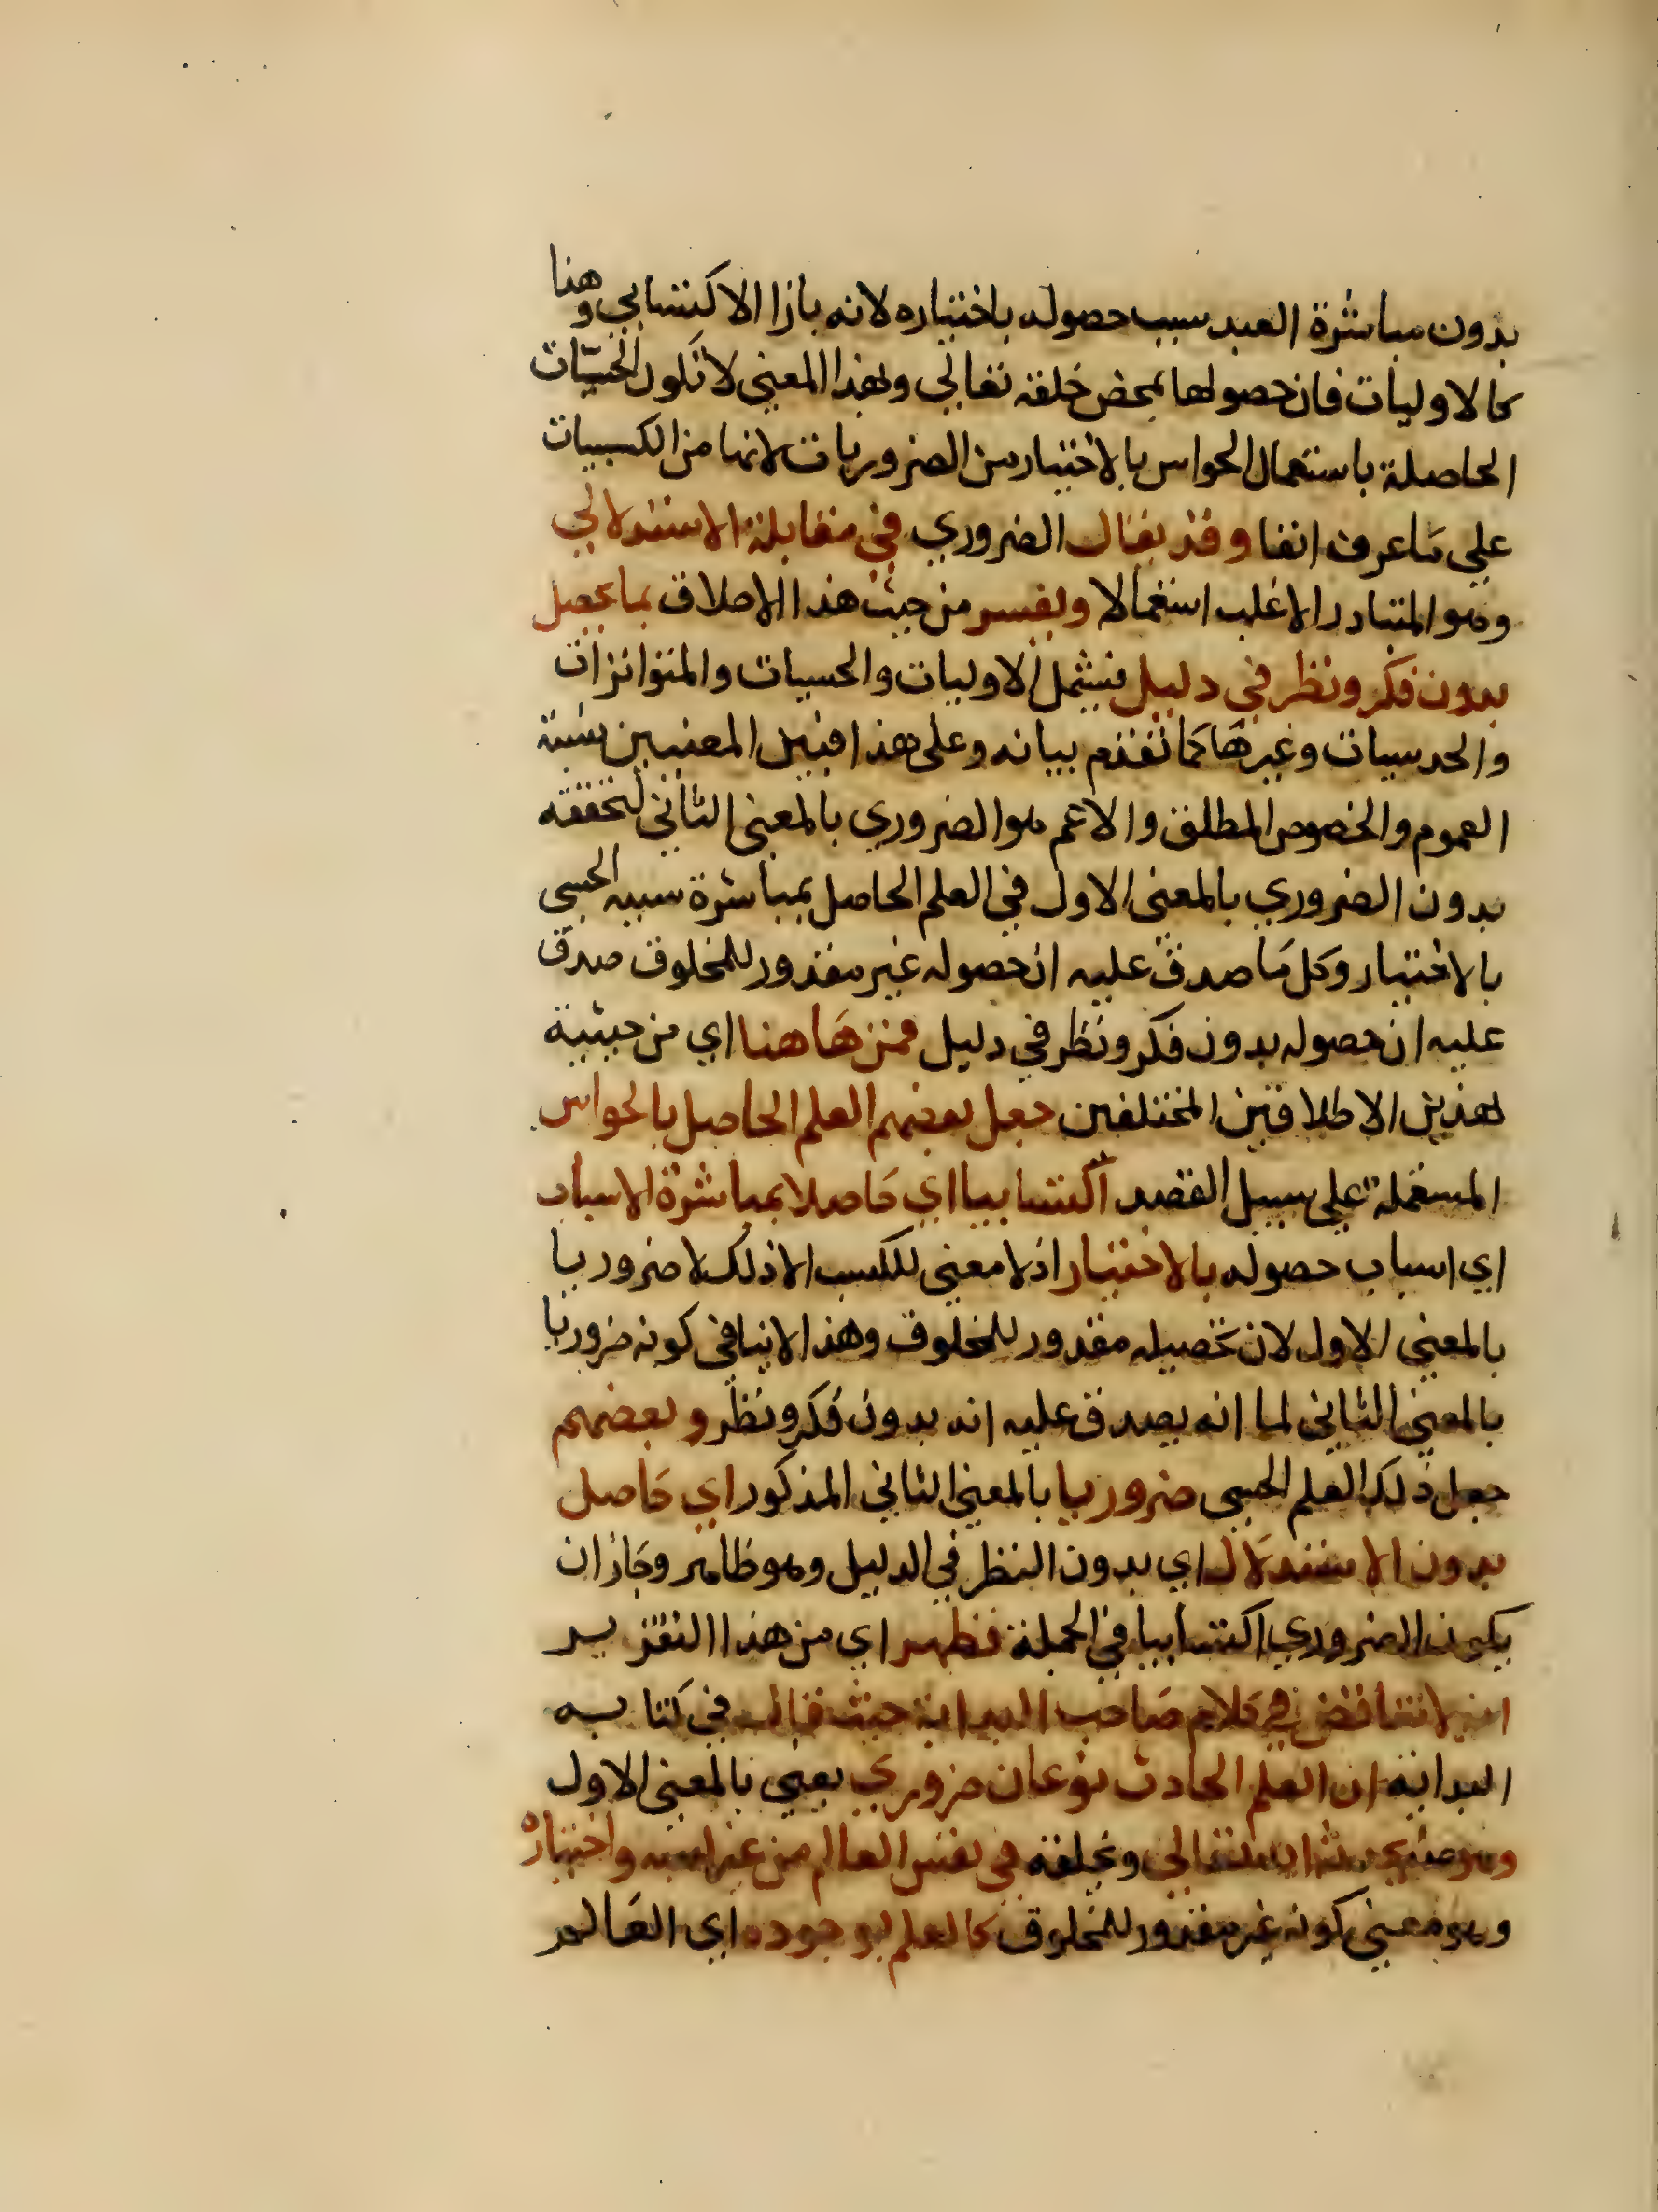 بدون مباشرة العبد سبب حصوله باختياره لانه بازا الاكتسابي وهنا
كالاوليات فان حصولها بمحض خلقه تعالي وبهذا المعني لا تكون الحسيات
الحاصلة باستعمال الحواس بالاختيار من الضروريات لانها من الكسبيات
علي ما عرف انفا وقد يقال الضروري في مقابلة الاستدلالي
وهو المتبادر الاغلب استعمالا ويفسر من حيث هذا الاطلاق بما يحصل
بدون فكر ونظر في دليل فيشمل الاوليات والحسيات والمتواترات
والحدسيات وغيرها كما تقدم بيانه وعلي هذا فبين المعنيين نسبة
العموم والخصوص المطلق والاعم هو الضروري بالمعني الثاني لتحققه
بدون الضروري بالمعني الاول في العلم الحاصل بمباشرة سببه الحسي
بالاختيار وكل ما صدق عليه ان حصوله غير مقدور للمخلوق صدق
عليه ان حصوله بدون فكر ونظر في دليل فمن هاهنا اي من حيثية
هذين الاطلاقين المختلفين جعل بعضهم العلم الحاصل بالحواس
المستعملة علي سبيل القصد اكتسابيا اي حاصلا بمباشرة الاسباب
اي اسباب حصوله بالاختيار اذ لا معني للكسب الا ذلك لا ضروريا
بالمعني الاول لان تحصيله مقدور للمخلوق وهذا لا ينافي كونه ضروريا
بالمعني الثاني لما انه يصدق عليه انه بدون فكر ونظر وبعضهم
جعل ذلك العلم الحسي ضروريا بالمعني الثاني المذكور اي حاصل
بدون الاستدلال اي بدون النظر في الدليل وهو ظاهر وجاز ان
يكون الضروري اكتسابيا في الجملة فظهر اي من هذا التقرير
انه لا تناقض في كلام صاحب البداية حيث قال في كتابه
البداية ان العلم الحادث نوعان ضروري يعني بالمعني الاول
وهو ما يحدثه الله تعالي ويخلقه في نفس العالم من غير كسبه واختياره
وهو معني كونه غير مقدور للمخلوق كالعلم بوجوده اي العالم